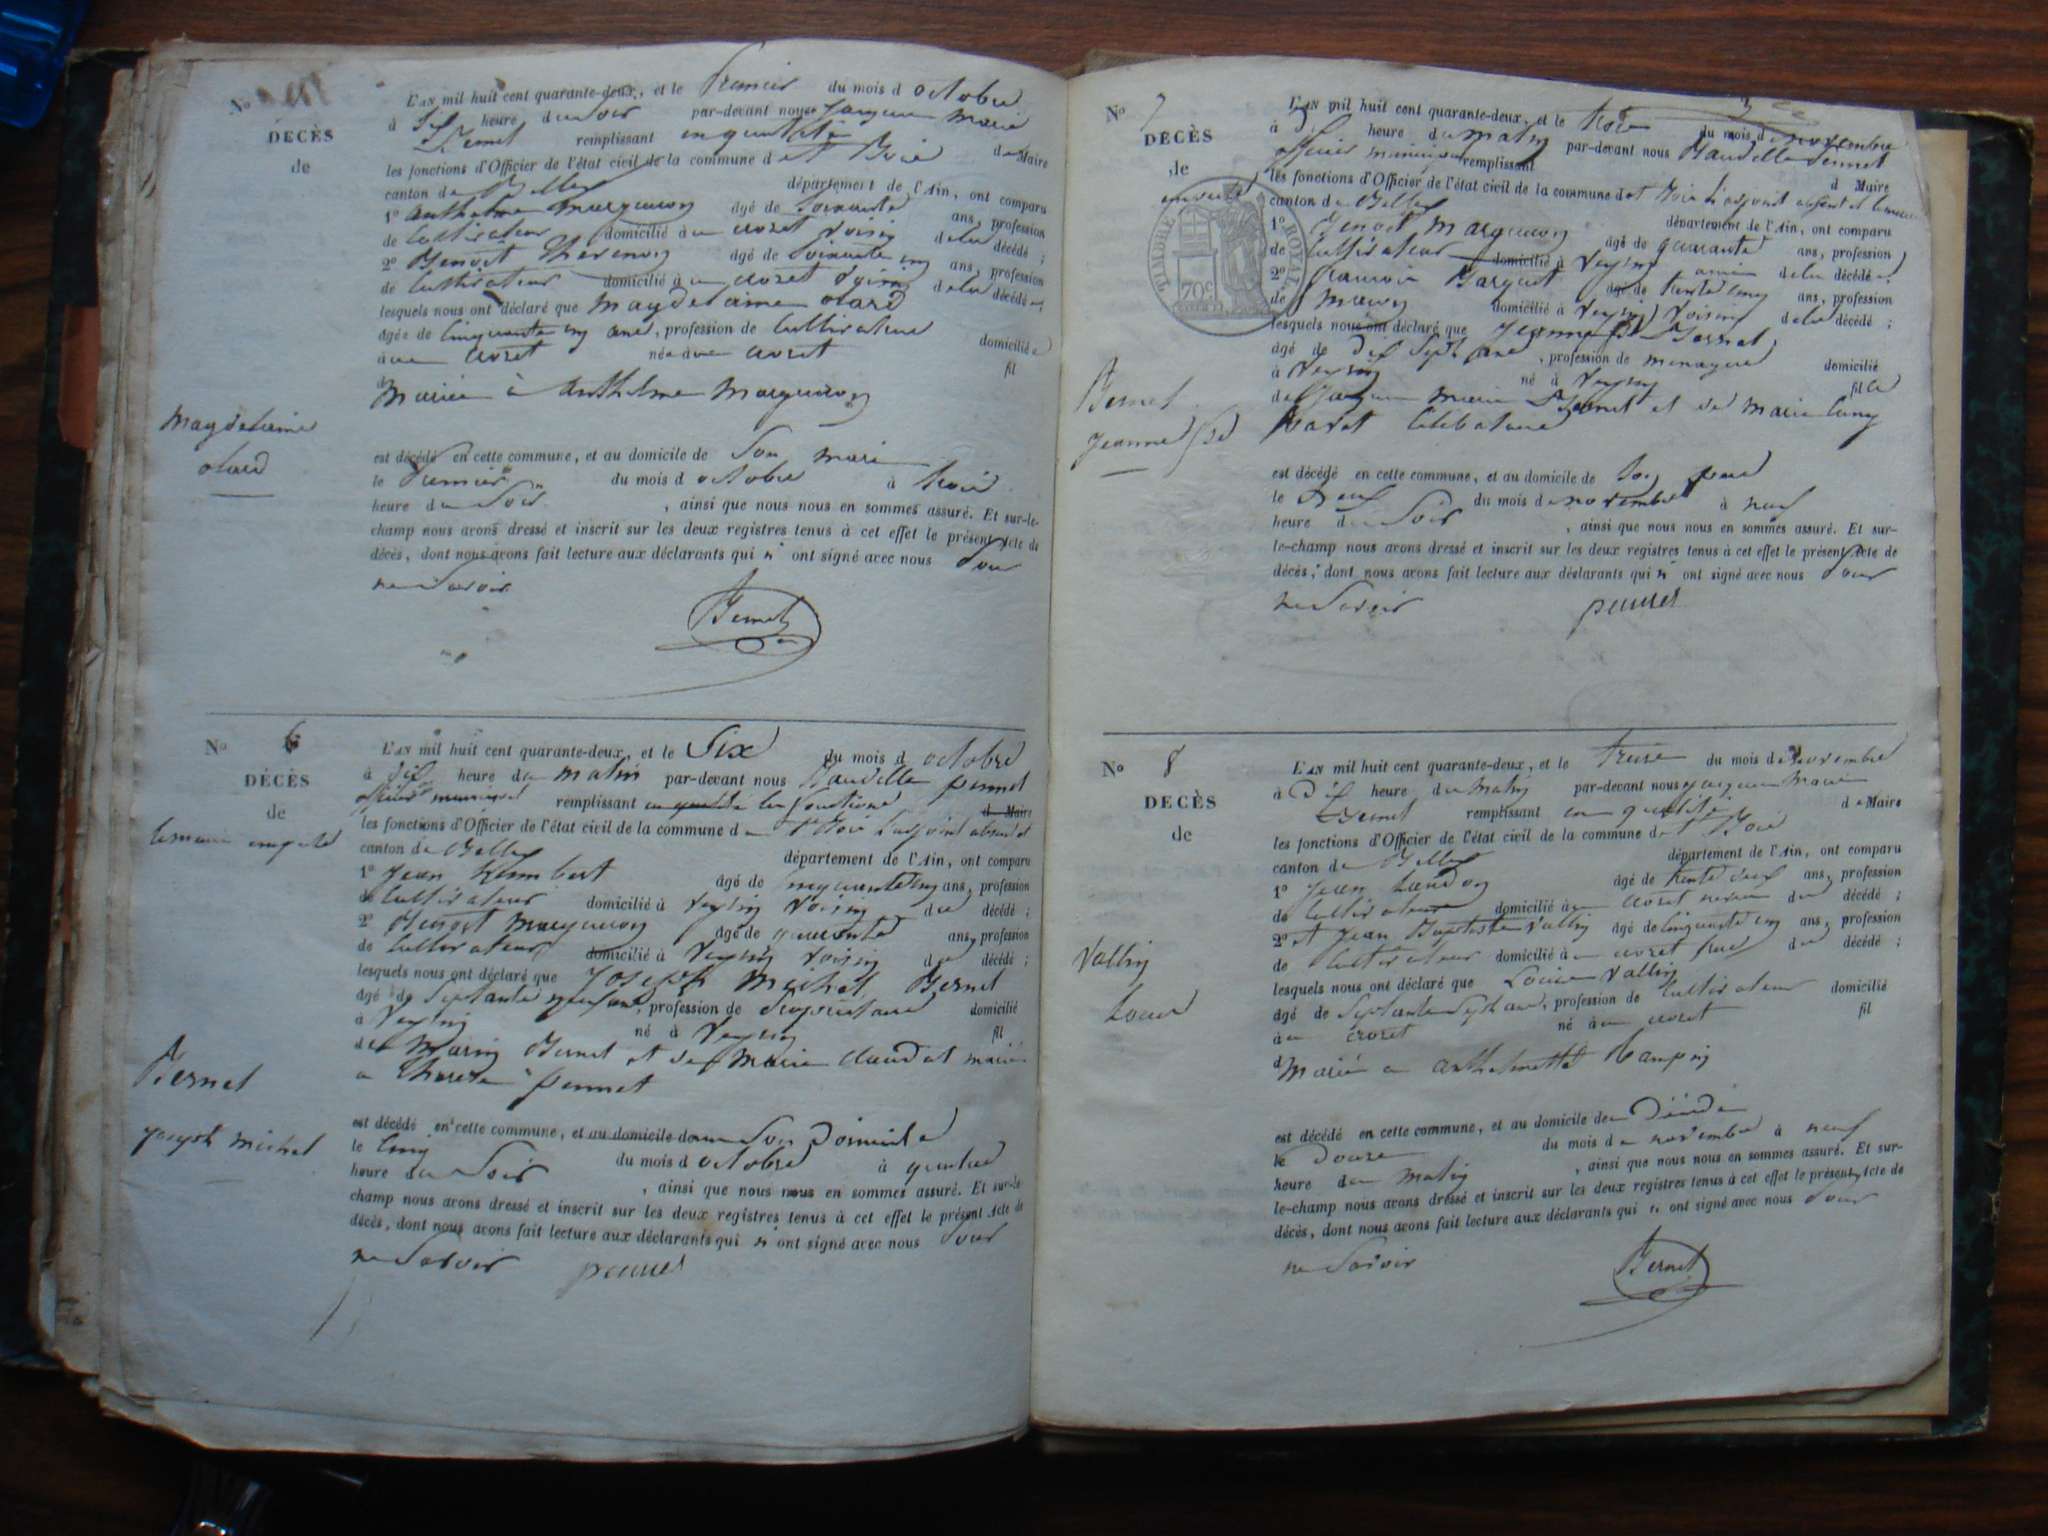 No
DÉCÈS
de
Magdelaine
olard
L'AN mil huit cent quarante-deux, et le Premier du mois d octobre
à Six heure du Soir par-devant nous Jaques Marie
Bernet remplissant en qualité de Maire
les fonctions d'Officier de l'état civil de la commune de St Boie
canton de Belley département de l'Ain, ont comparu
1° Anthelme Marguron âgé de Soixante ans, profession
de Cultivateur domicilié à au croset voisin de la décédé ;
2° Benoit Thevenon âgé de Soixante cinq ans, profession
de Cultivateur domicilié à au croset Voisin de la décédé ;
lesquels nous ont déclaré que Magdelaine olard
âgée de Cinquante cinq ans, profession de Cultivateur domiciliée
à au croset née à au croset fil
d Mariée à Anthelme Marguron
est décédé en cette commune, et au domicile de Son mari
le Premier du mois d octobre à trois
heure du Soir , ainsi que nous nous en sommes assuré. Et sur-le-
champ nous avons dressé et inscrit sur les deux registres tenus à cet effet le présent Acte de
décès, dont nous avons fait lecture aux déclarants qui n' ont signé avec nous Pour
ne Savoir
Bernet
No 6
DÉCÈS
de
le maire empeché
Bernet
joseph michel
L'AN mil huit cent quarante-deux, et le Six du mois d octobre
à dix heure du matin par-devant nous Claudille pennet
officier municipal remplissant en qualité les fonctions de Maire
les fonctions d'Officier de l'état civil de la commune de St Boie L'adjoint absent et
canton de Belley département de l'Ain, ont comparu
1° Jean Humbert âgé de cinquante cinq ans, profession
de Cultivateur domicilié à Veysin Voisin du décédé ;
2° Benoit Marguron âgé de quarante ans, profession
de Cultivateur domicilié à Veysin Voisin du décédé ;
lesquels nous ont déclaré que Joseph Michel Bernet
âgé de Septante ans, profession de Propriétaire domicilié
à Veysin né à Veysin fil
de Marin Bernet et de Marie Claudat marié
a Therese pennet
est décédé en cette commune, et au domicile de Son Domicile
le Cinq du mois d octobre à quatre
heure du Soir , ainsi que nous nous en sommes assuré. Et sur-le-
champ nous avons dressé et inscrit sur les deux registres tenus à cet effet le présent Acte de
décès, dont nous avons fait lecture aux déclarants qui n' ont signé avec nous Pour
ne Savoir pennet
No 7
DÉCÈS
de
Bernet
Jeanne
TIMBRE ROYAL
70c
L'AN mil huit cent quarante-deux, et le trois du mois de novembre
à dix heure du matin par-devant nous Claudille pennet
officier municipal remplissant d Maire
les fonctions d'Officier de l'état civil de la commune de St Boie L'adjoint absent et le maire
canton de Belley département de l'Ain, ont comparu
1° Benoit Marguron âgé de quarante ans, profession
de Cultivateur domicilié à Veysin de la décédé ;
2° francois Barquet âgé de trente cinq ans, profession
de Maçon domicilié à Veysin Voisin de la décédé ;
lesquels nous ont déclaré que Jeanne Bernet
âgé de dix Sept ans, profession de menagere domicilié
à Veysin né à Veysin fille
de Jaques Marie Bernet et de Marie
Celibataire
est décédé en cette commune, et au domicile de Son pere
le Deux du mois de novembre à neuf
heure du Soir , ainsi que nous nous en sommes assuré. Et sur-
le-champ nous avons dressé et inscrit sur les deux registres tenus à cet effet le présent Acte de
décès, dont nous avons fait lecture aux déclarants qui n' ont signé avec nous Pour
ne Savoir pennet
No 8
DÉCÈS
de
Vallin
Louis
L'AN mil huit cent quarante-deux, et le treize du mois de Novembre
à Dix heure du Matin par-devant nous Jaques Marie
Bernet remplissant en qualité de Maire
les fonctions d'Officier de l'état civil de la commune de St Boie
canton de Belley département de l'Ain, ont comparu
1° Jean Landon âgé de trente deux ans, profession
de Cultivateur domicilié à au croset neveu du décédé ;
2° et Jean Baptiste Vallin âgé de Cinquante cinq ans, profession
de Cultivateur domicilié à au croset du décédé ;
lesquels nous ont déclaré que Louis Vallin
âgé de Septante Sept ans, profession de Cultivateur domicilié
à au croset né à au croset fil
d Marié a Anthelmette
est décédé en cette commune, et au domicile de
le Douze du mois de novembre à neuf
heure du Matin , ainsi que nous nous en sommes assuré. Et sur-
le-champ nous avons dressé et inscrit sur les deux registres tenus à cet effet le présent Acte de
décès, dont nous avons fait lecture aux déclarants qui n' ont signé avec nous Pour
ne Savoir
Bernet